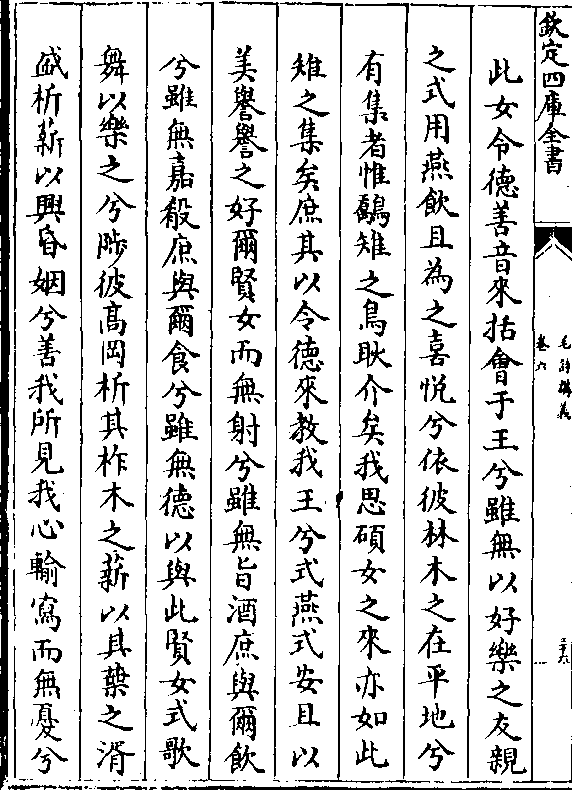 欽定四庫全書
毛詩講義
卷六
此女令德善音來括會于王兮雖無以好樂之友親
之式用燕飲且為之喜悅兮依彼林木之在平地兮
有集者惟鷮雉之鳥耿介矣我思碩女之來亦如此
雉之集矣庶其以令德來教我王兮式燕式安且以
美譽譽之好爾賢女而無射兮雖無旨酒庶與爾飲
兮雖無嘉殽庶與爾食兮雖無德以與此賢女式歌
舞以樂之兮陟彼髙岡析其柞木之薪以其葉之湑
盛析薪以興昏姻兮善我所見我心輸寫而無憂兮